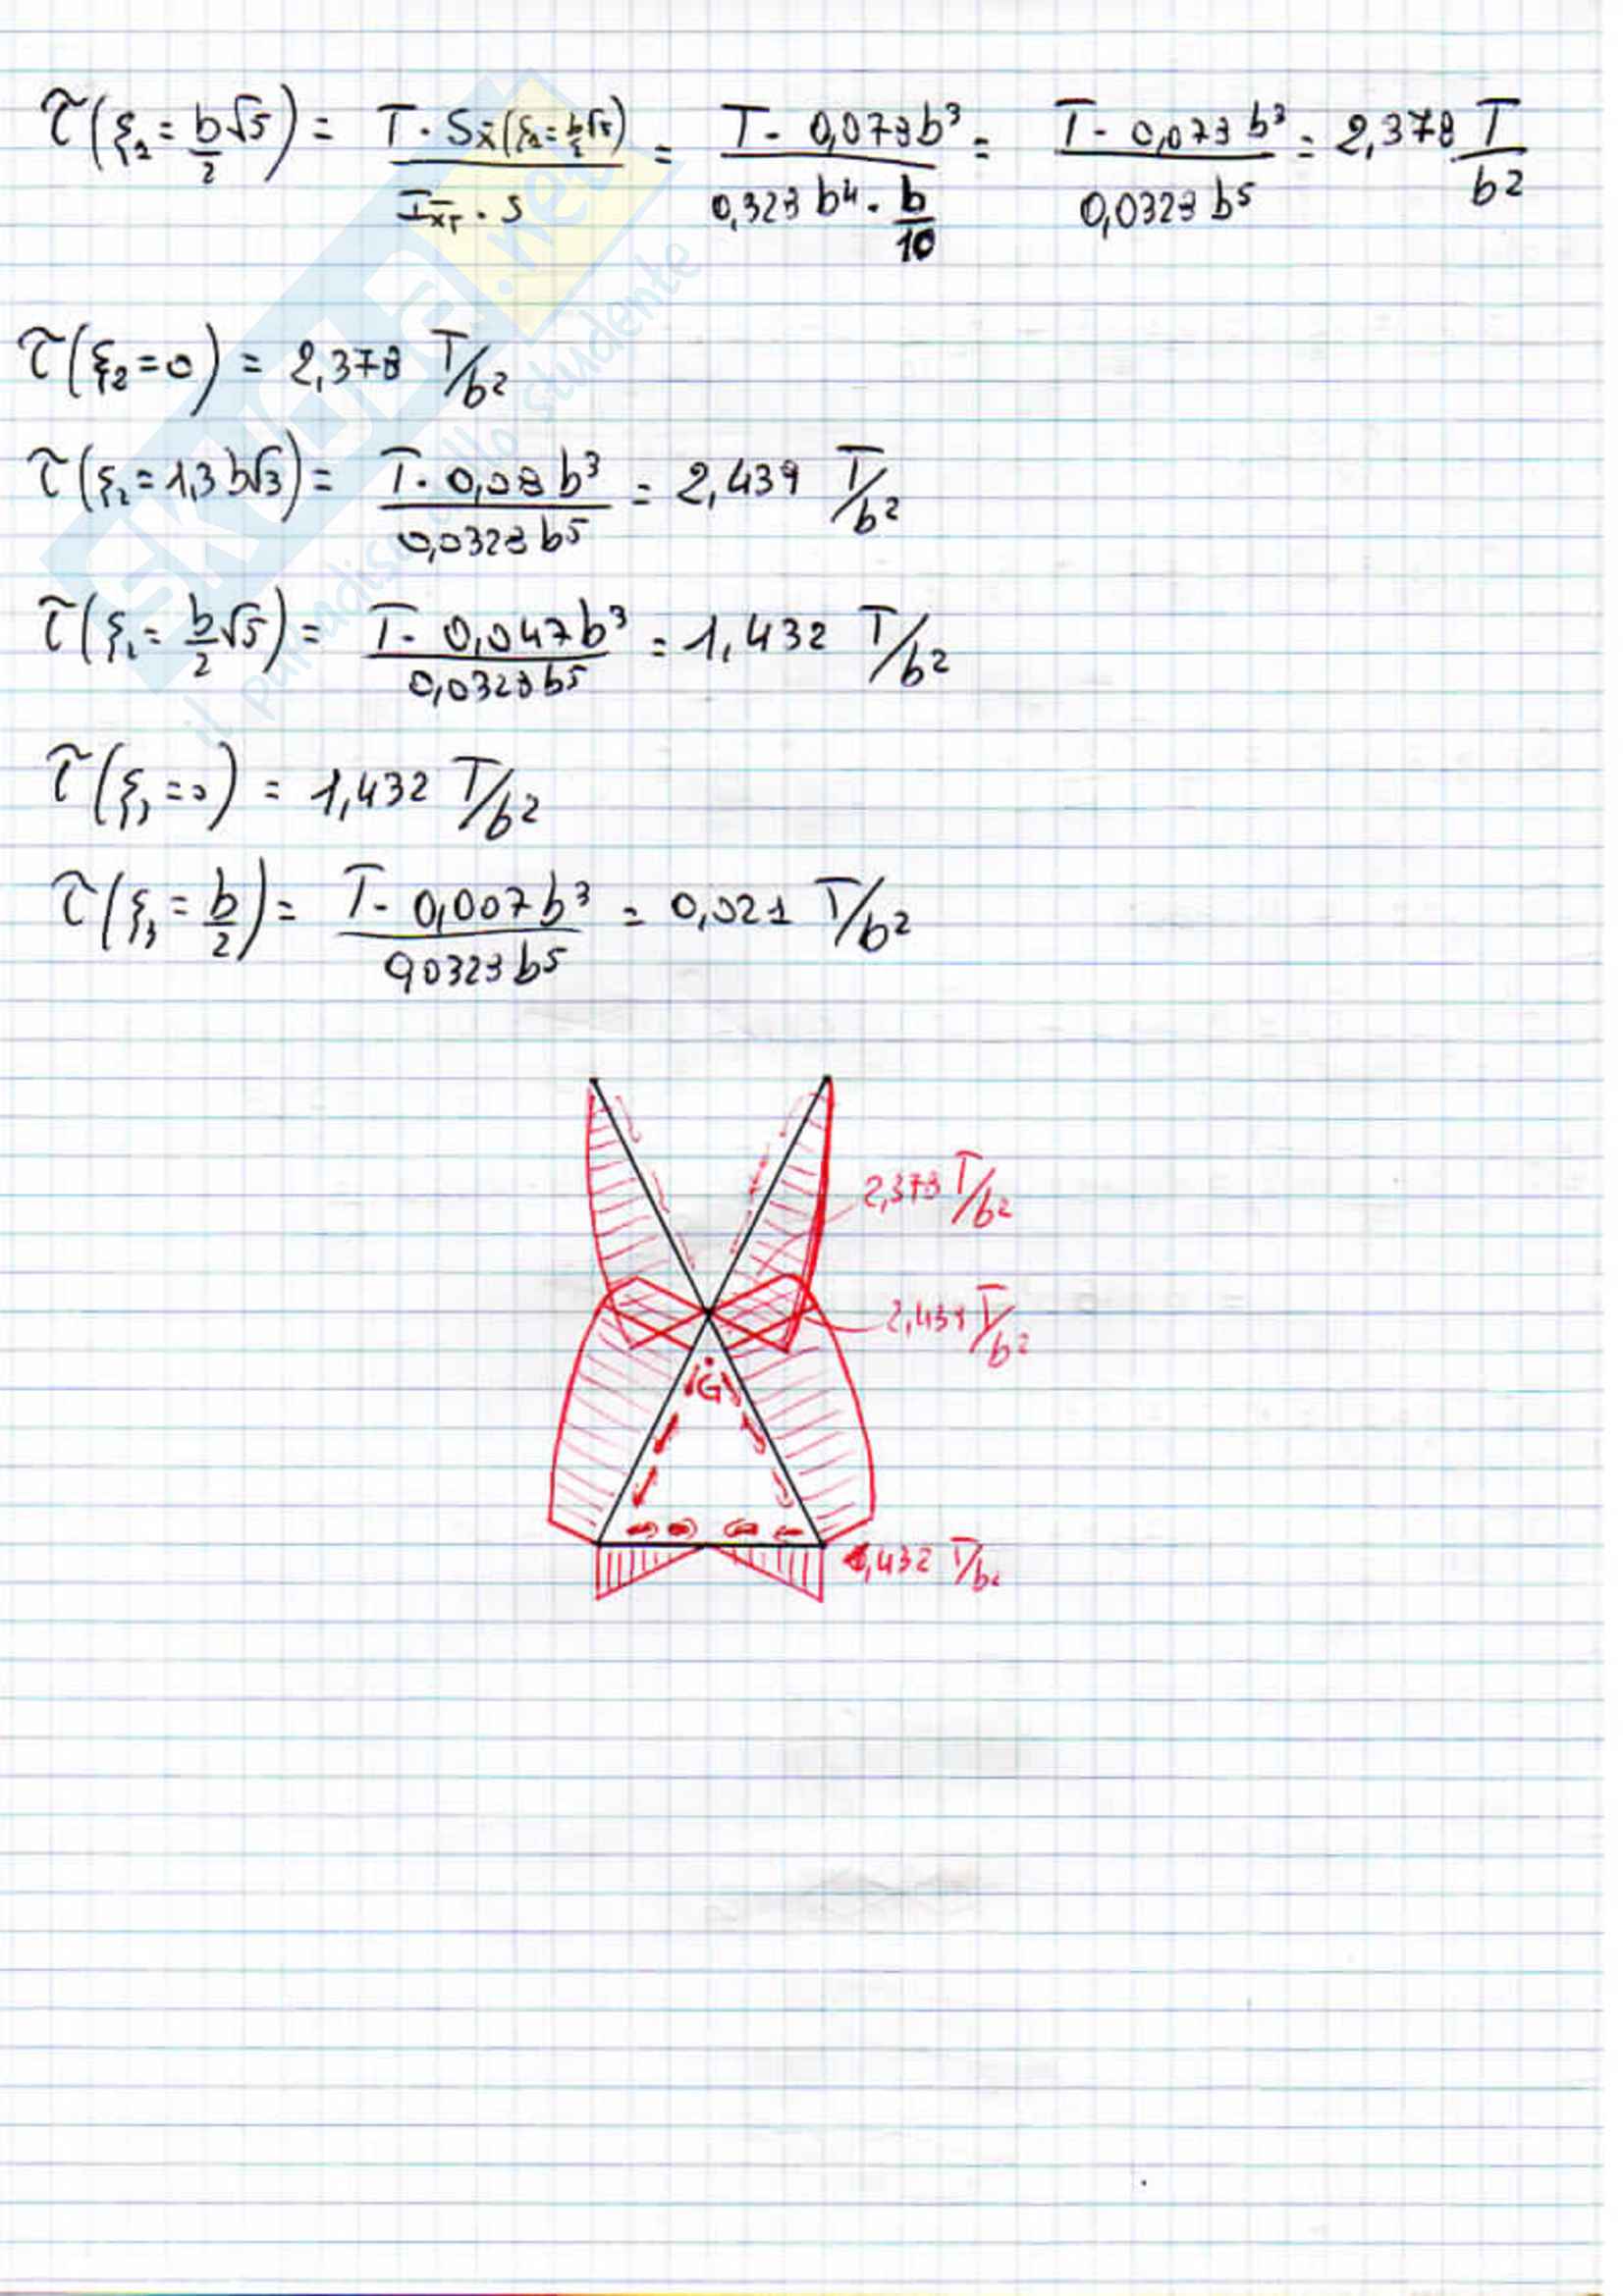 τ(ξ₂ = b/2 √5) = T · Sx̄(ξ₂ = b/2 √5) / Ix̄T · S = T · 0,078b³ / 0,328 b⁴ · b/10 = T · 0,078 b³ / 0,0328 b⁵ = 2,378 T/b²
τ(ξ₂ = 0) = 2,378 T/b²
τ(ξ₂ = 1,3 b√3) = T · 0,08 b³ / 0,0328 b⁵ = 2,439 T/b²
τ(ξ₁ = b/2 √5) = T · 0,047b³ / 0,0328 b⁵ = 1,432 T/b²
τ(ξ₁ = 0) = 1,432 T/b²
τ(ξ₃ = b/2) = T · 0,007 b³ / 0,0328 b⁵ = 0,021 T/b²
2,378 T/b²
2,439 T/b²
G
1,432 T/b²
SKUOLA.net
il paradiso dello studente